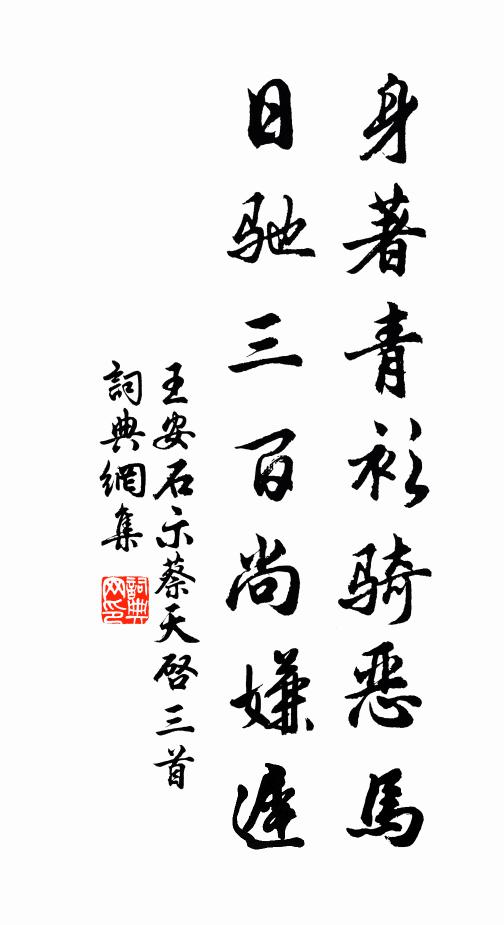 身著青衫騎惡馬
日馳三百尚嫌遲
王安石示蔡天啓三首
詞典網集
詞典網印